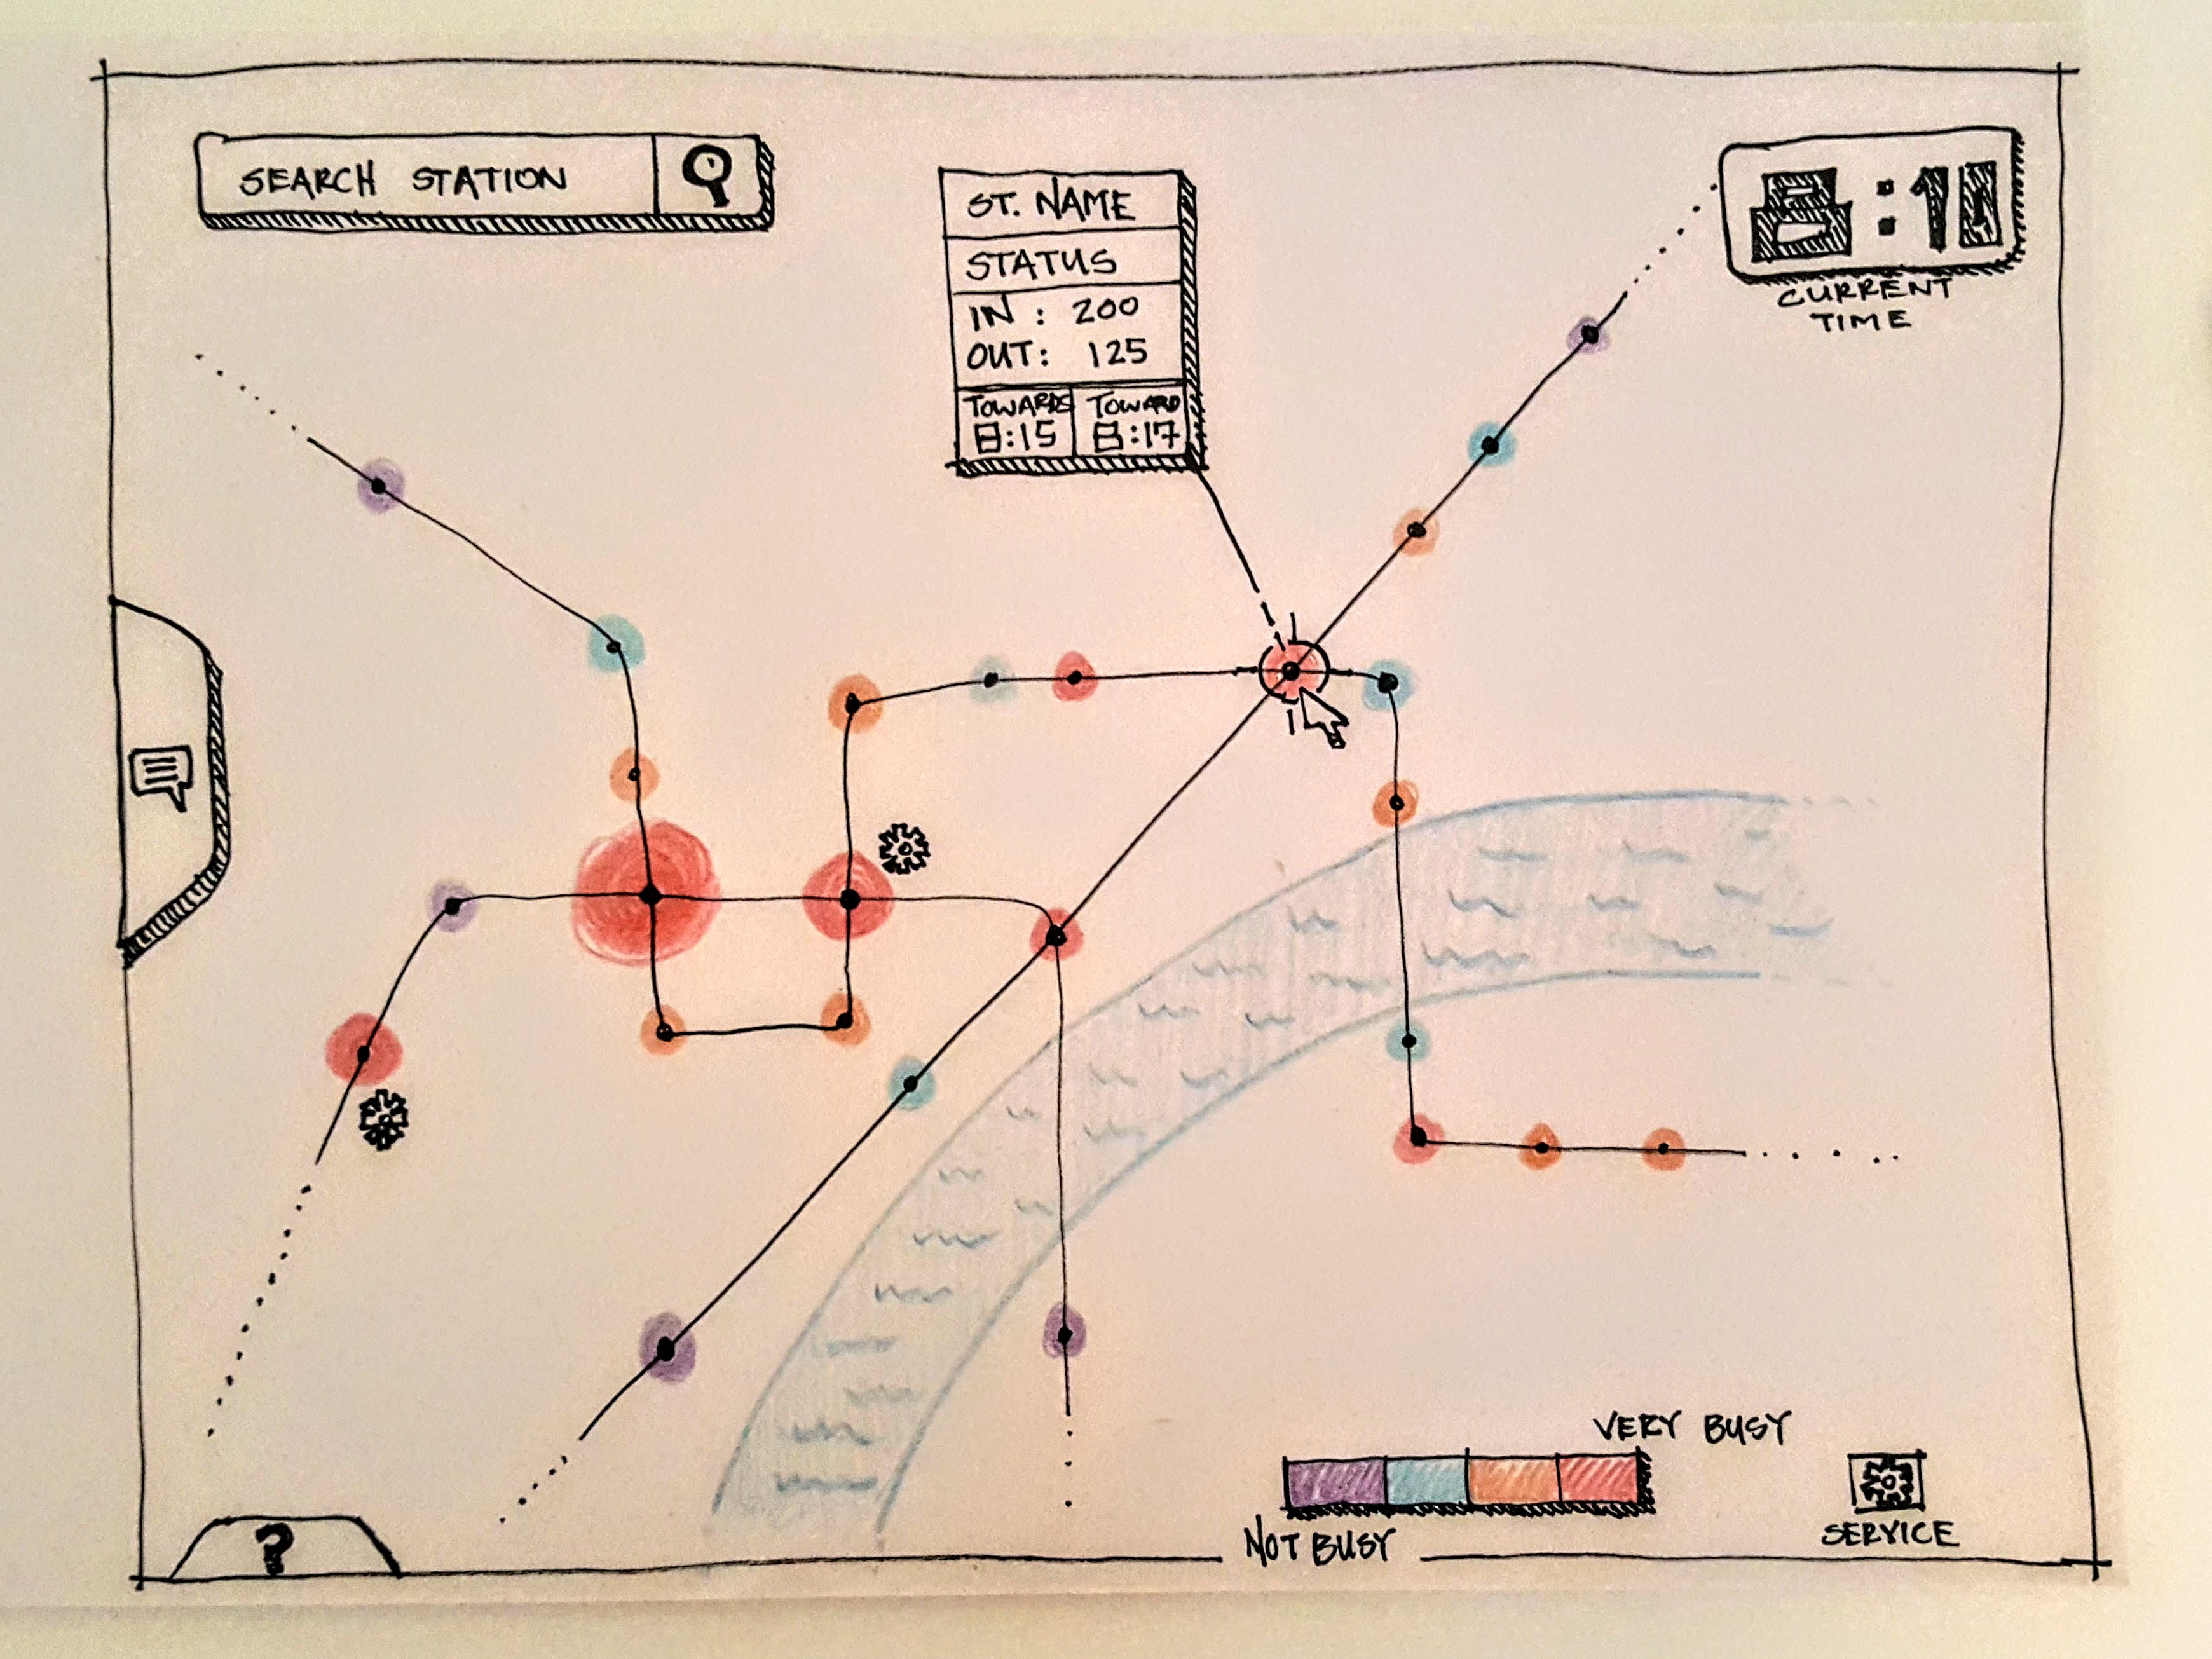 SEARCH STATION
ST. NAME
STATUS
IN : 200
OUT: 125
TOWARDS TOWARD
8:15 8:17
8:10
CURRENT
TIME
VERY BUSY
NOT BUSY
SERVICE
?